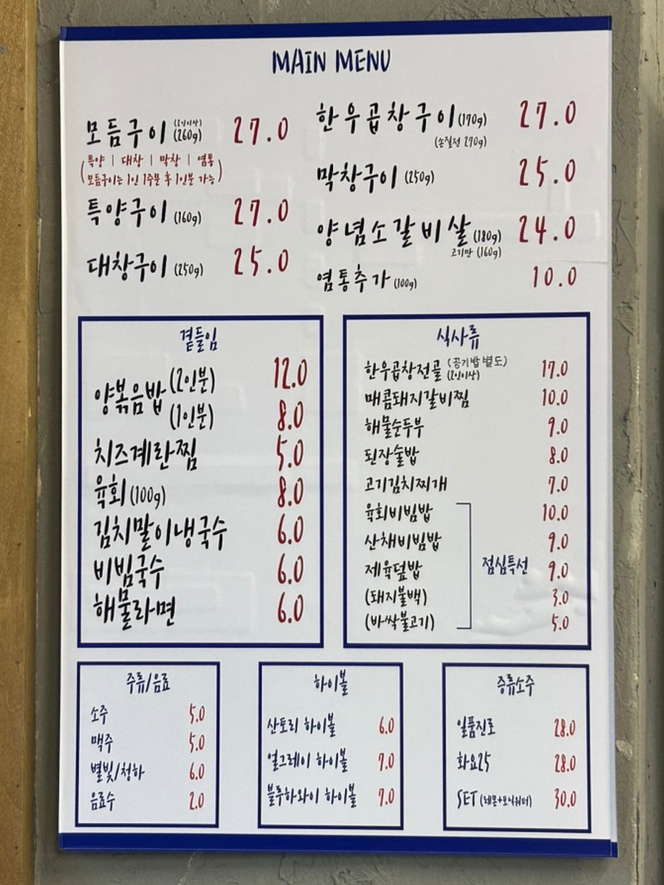 MAIN MENU
모듬구이 (2인이상) (260g) 27.0
(특양 | 대창 | 막창 | 염통
모듬구이는 1인 1주문 후 1인분 가능)
특양구이 (160g) 27.0
대창구이 (250g) 25.0
한우곱창구이 (170g) 27.0
(손질전 270g)
막창구이 (250g) 25.0
양념소갈비살 (180g) 24.0
고기만 (160g)
염통추가 (100g) 10.0
곁들임
양볶음밥 (2인분) 12.0
(1인분) 8.0
치즈계란찜 5.0
육회 (100g) 8.0
김치말이냉국수 6.0
비빔국수 6.0
해물라면 6.0
식사류
한우곱창전골 (공기밥별도) (2인이상) 17.0
매콤돼지갈비찜 10.0
해물순두부 9.0
된장술밥 8.0
고기김치찌개 7.0
육회비빔밥 10.0
산채비빔밥 9.0
제육덮밥 9.0
점심특선
(돼지불백) 3.0
(바싹불고기) 5.0
주류/음료
소주 5.0
맥주 5.0
별빛/청하 6.0
음료수 2.0
하이볼
산토리 하이볼 6.0
얼그레이 하이볼 7.0
블루하와이 하이볼 7.0
증류소주
일품진로 28.0
화요25 28.0
SET (레몬+토닉워터) 30.0